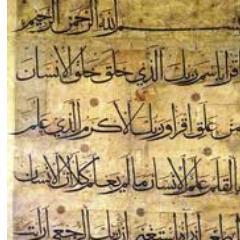 بسم الله الرحمن الرحيم
اقرأ باسم ربك الذي خلق خلق الإنسان
من علق اقرأ وربك الأكرم الذي علم
بالقلم علم الإنسان ما لم يعلم كلا إن الإنسان
إن إلى ربك الرجعى أرأيت